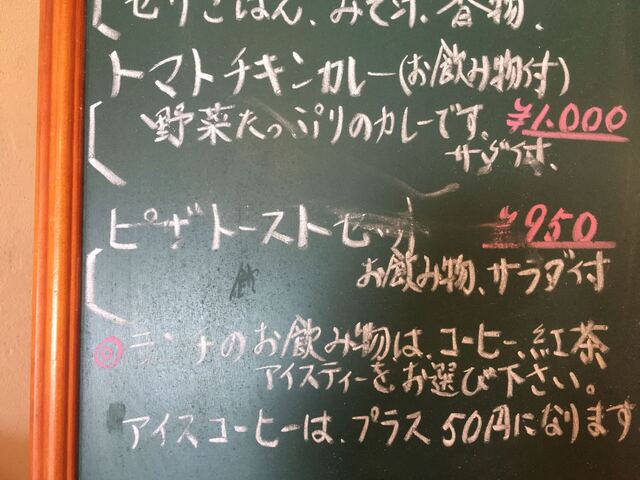 せりごはん、みそ汁、香物、
トマトチキンカレー(お飲み物付)
野菜たっぷりのカレーです、 ¥1,000
サラダ付、
ピザトーストセット ¥950
お飲み物、サラダ付
◎ランチのお飲み物は、コーヒー、紅茶
アイスティーをお選び下さい。
アイスコーヒーは、プラス50円になります